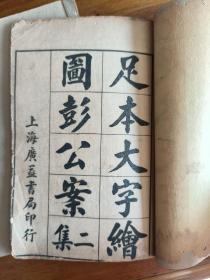 足本大字繪
圖彭公案
二集
上海廣益書局印行